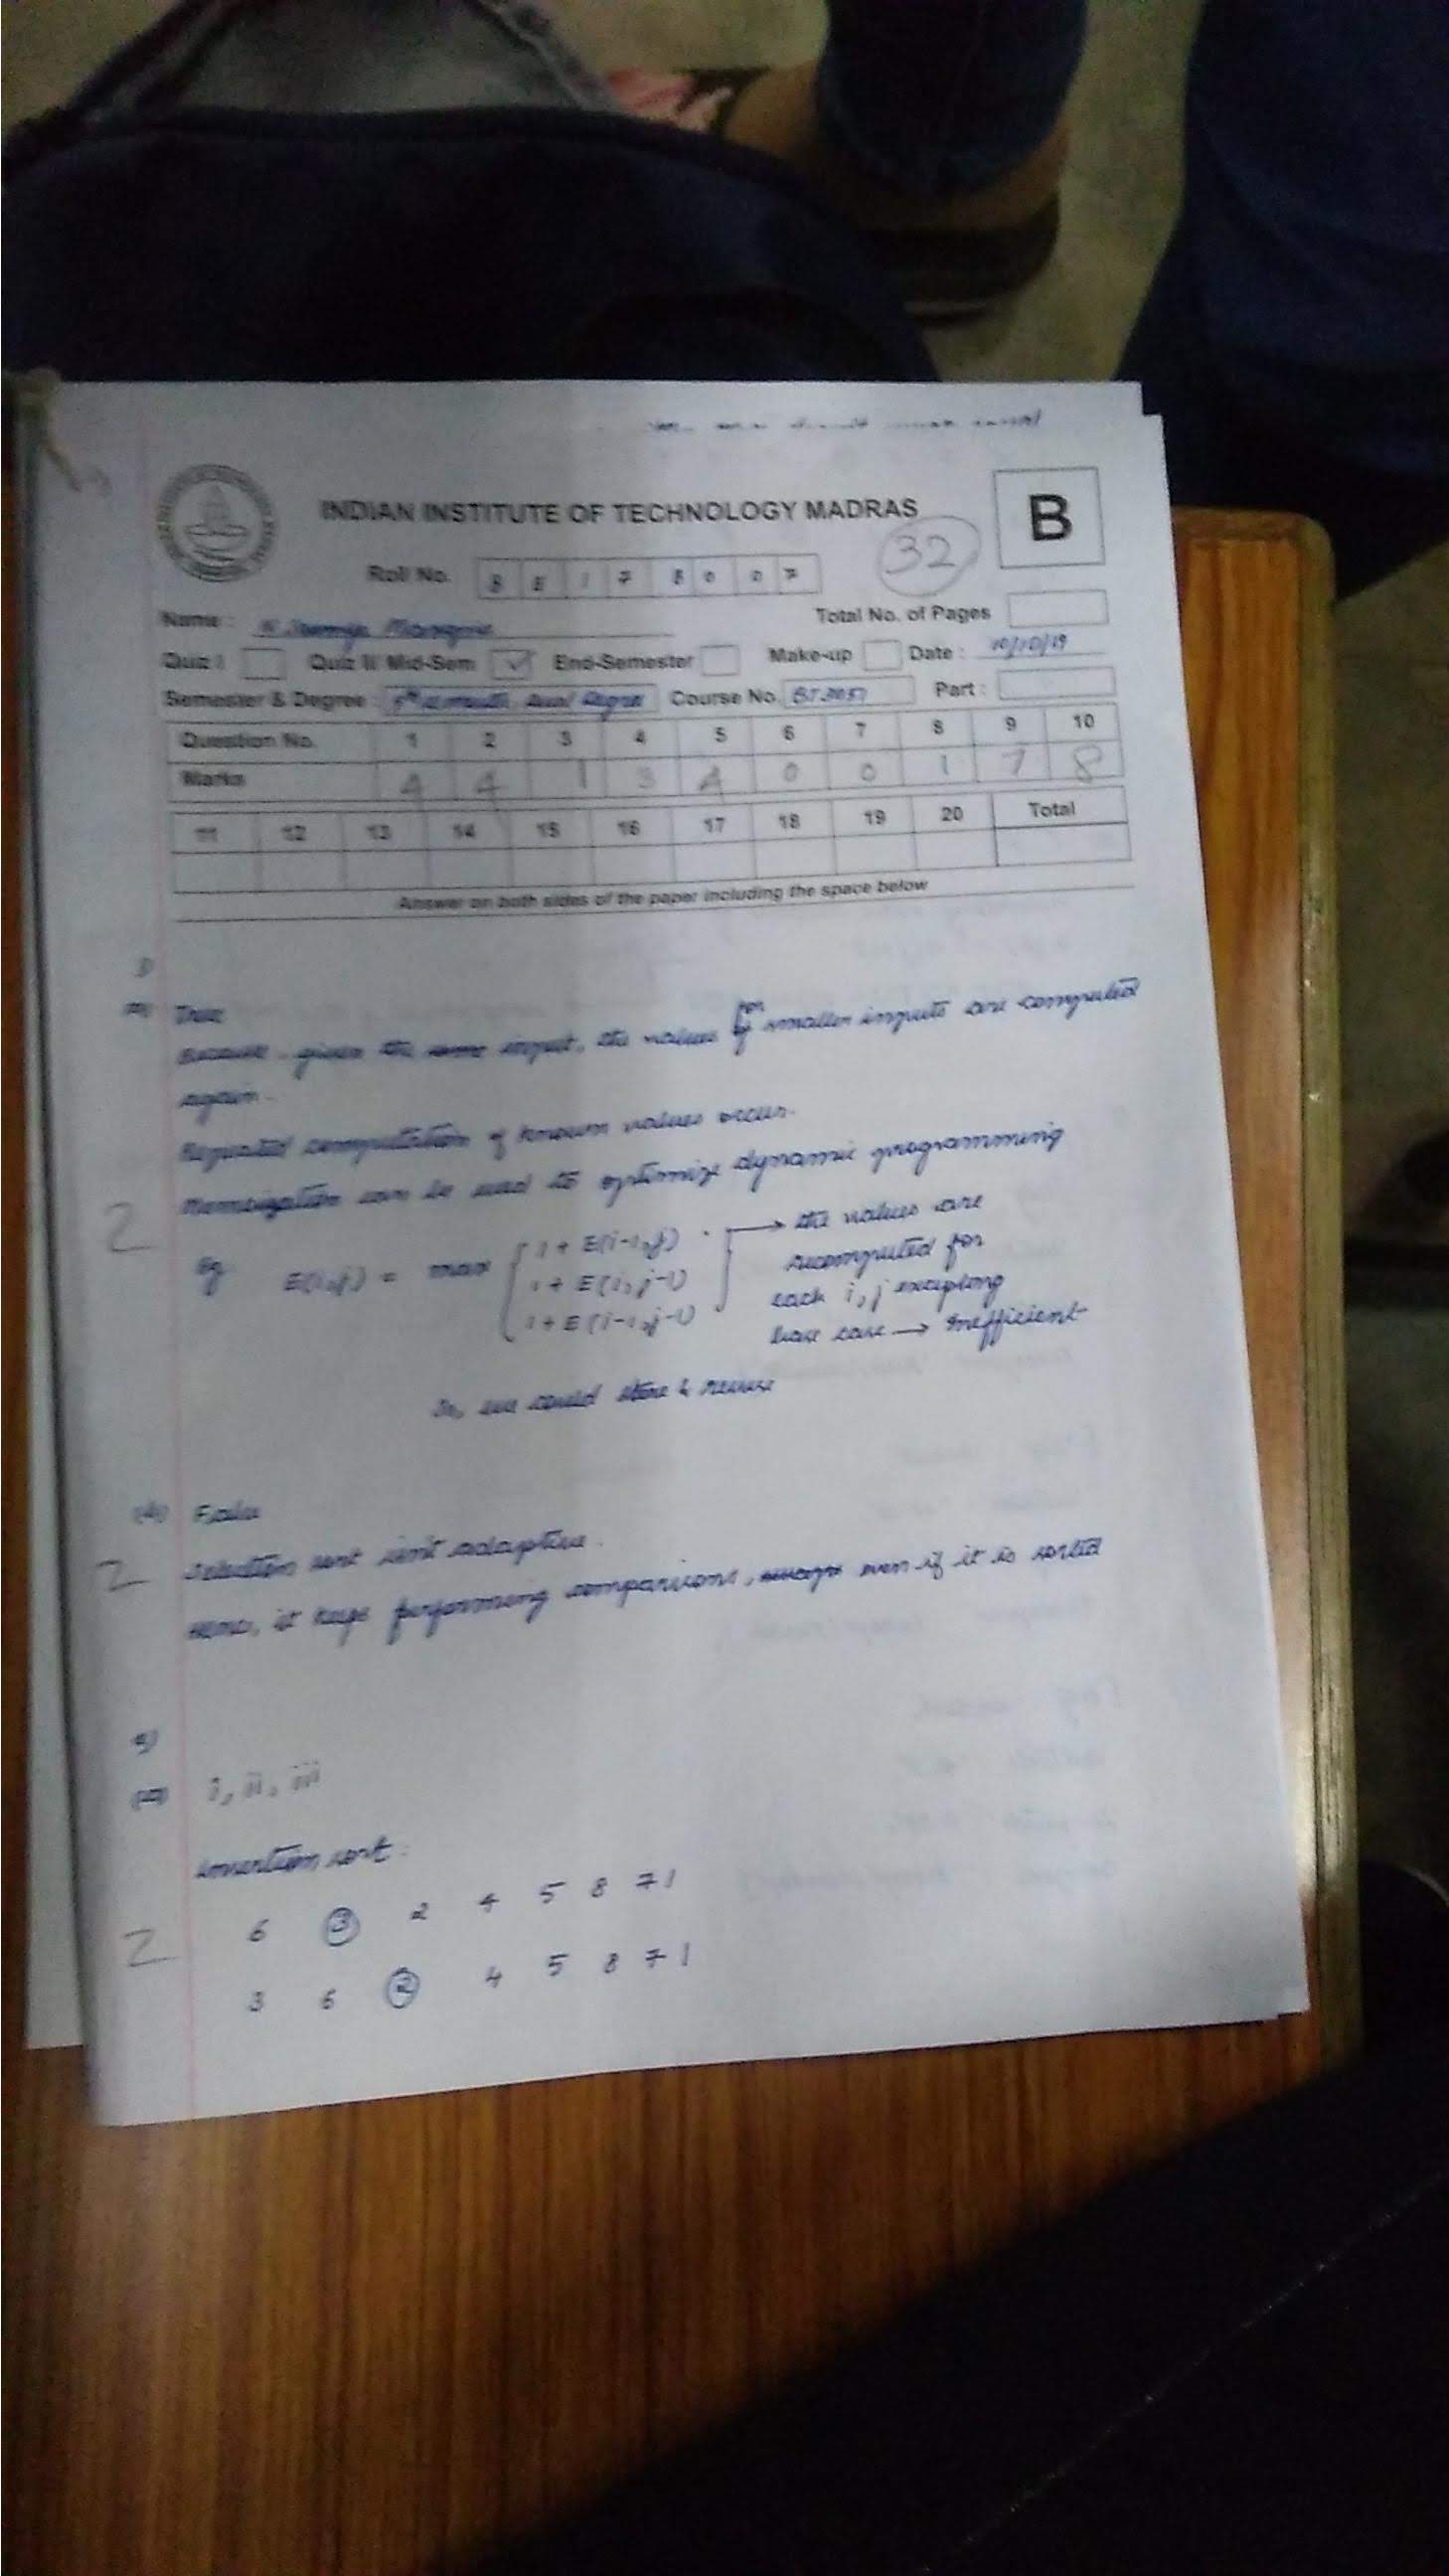 INDIAN INSTITUTE OF TECHNOLOGY MADRAS
B
32
Roll No.
Name :
Total No. of Pages
Quiz I Quiz II/ Mid-Sem ✓ End-Semester Make-up Date : 10/10/19
Semester & Degree : Dual Degree Course No. Part :
Question No. 1 2 3 4 5 6 7 8 9 10
Marks 4 4 1 3 4 0 0 1 7 8
11 12 13 14 15 16 17 18 19 20 Total
Answer on both sides of the paper including the space below
1)
(a) True
Because, given the same input, the values for smaller inputs are computed
again.
Repeated computation of known values occur.
Memoization can be used to optimize dynamic programming
2
Eg. E(i,j) = max { 1 + E(i-1,j) → the values are
1 + E(i,j-1) recomputed for
1 + E(i-1,j-1) each i,j excepting
base case → inefficient
So, we could store & reuse
(b) False
2 Selection sort isn't adaptive.
Hence, it keeps performing comparisons, even if it is sorted
(a) i, ii, iii
insertion sort :
6 3 2 4 5 8 7 1
2
3 6 2 4 5 8 7 1